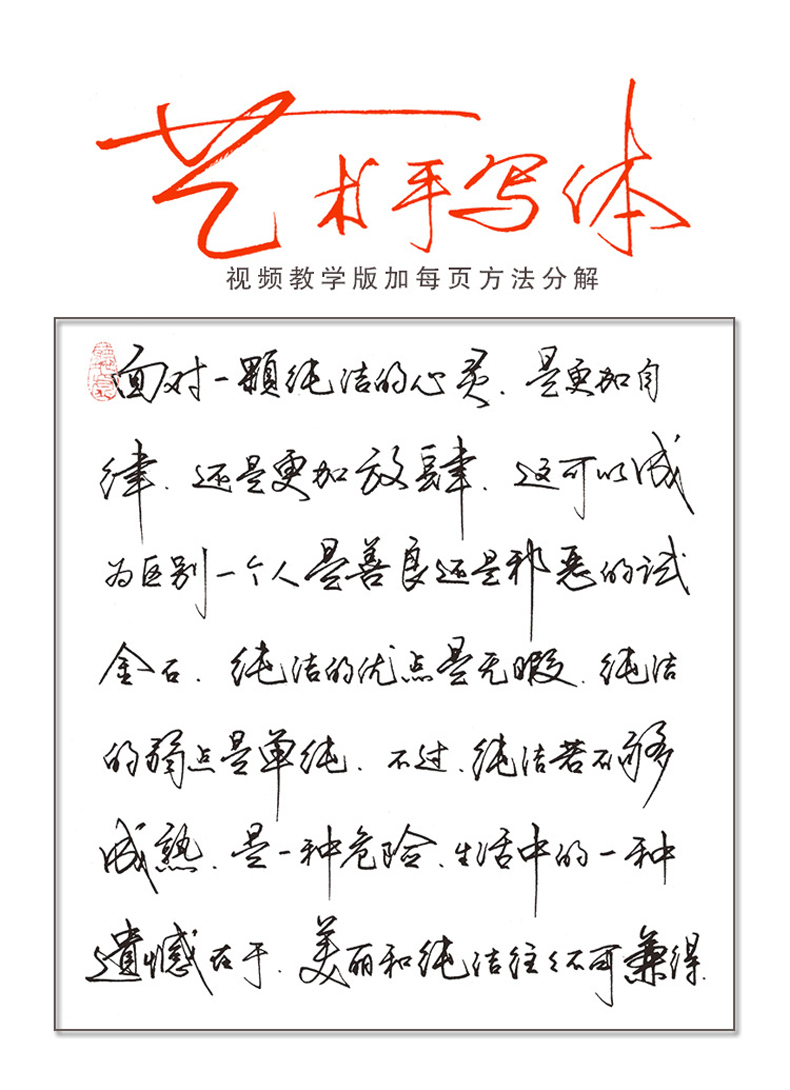 艺术手写体
视频教学版加每页方法分解
面对一颗纯洁的心灵.是更加自
律.还是更加放肆.这可以成
为区别一个人是善良还是邪恶的试
金石.纯洁的优点是无暇.纯洁
的弱点是单纯.不过.纯洁若不够
成熟.是一种危险.生活中的一种
遗憾在于.美丽和纯洁往往不可兼得.